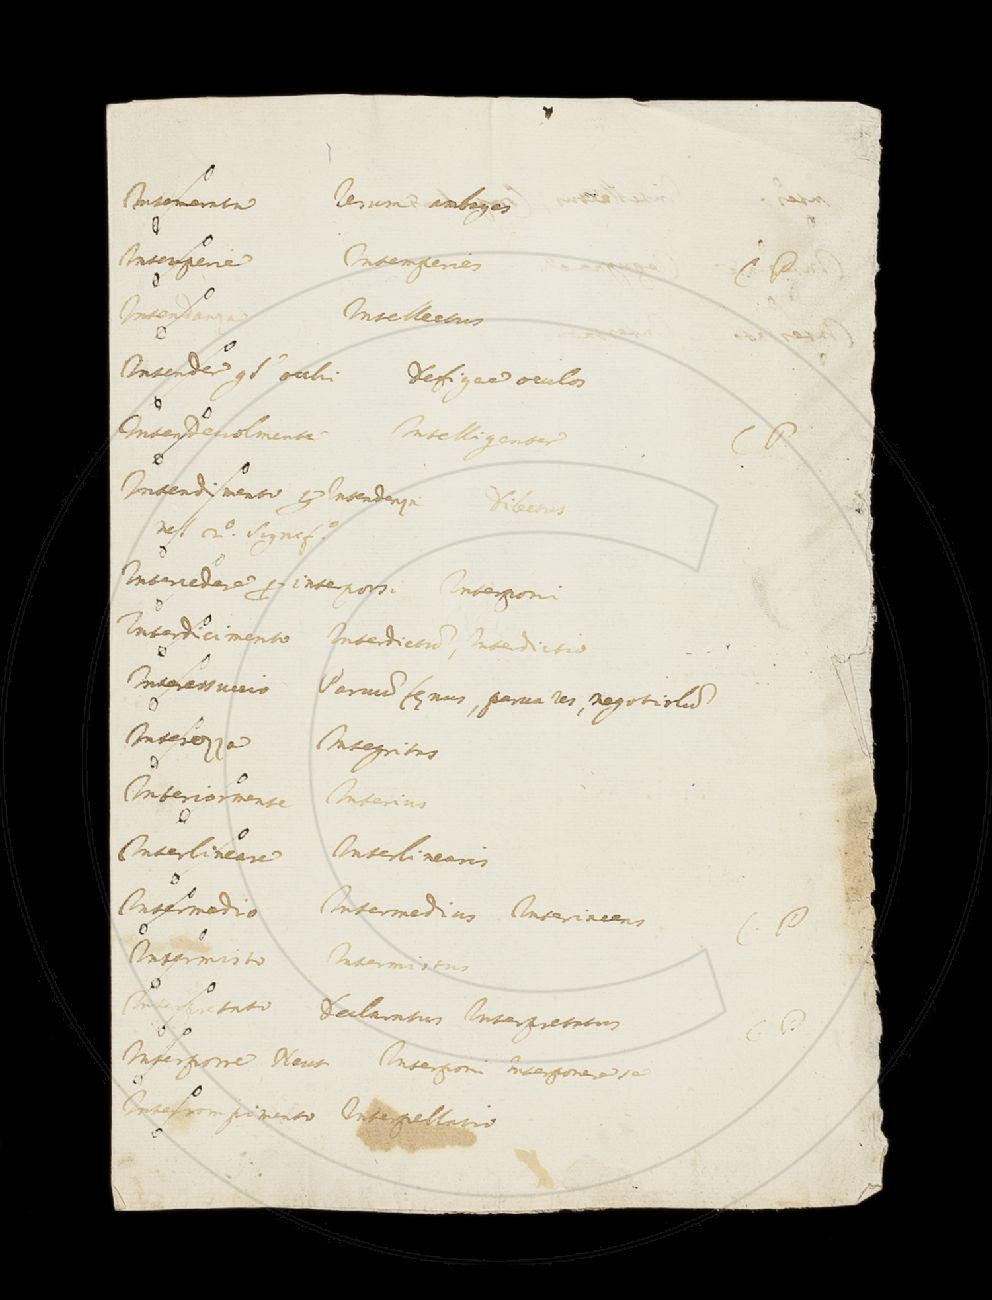 Intemerata Rerum ambages
Intemperie Intemperies C. P.
Intendanza Intellectus
Intender gl' occhi Defigere oculos
Intendevolmente Intelligenter C. P.
Intendimento p Intendenza Dilectus
nel 2.º signif.º
Interciedere p interporsi Interponi
Interdicimento Interdictū, Interdictio
Interessuccio Parvū fęnus, parva res, negotiolū
Interezza Integritas
Interiormente Interius
Interlineare Interlinearis
Intermedio Intermedius Interiacens C. P.
Intermisto Intermistus
Interpretato Declaratus Interpretatus C. P.
Interporre Neut Interponi Interponere se
Interrompimento Interpellatio